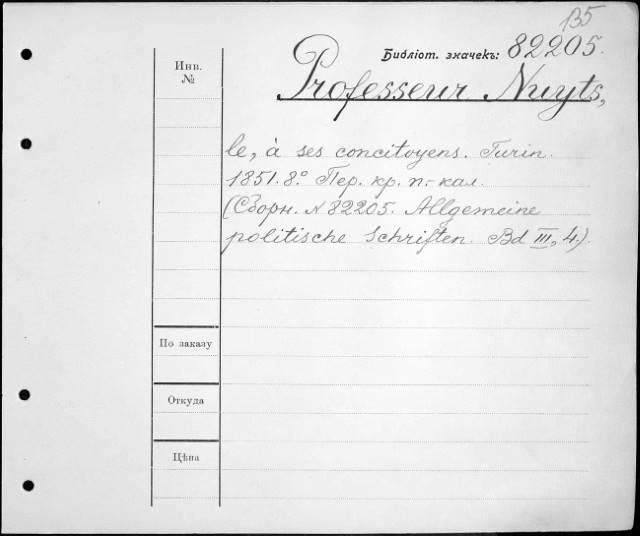 135
Библіот. значекъ: 82205.
Инв.
№
Professeur Nuyts,
le, à ses concitoyens. Turin.
1851. 8.° Пер. кр. п.-кал.
(Сборн. № 82205. Allgemeine
politische Schriften. Bd III, 4.).
По заказу
Откуда
Цѣна